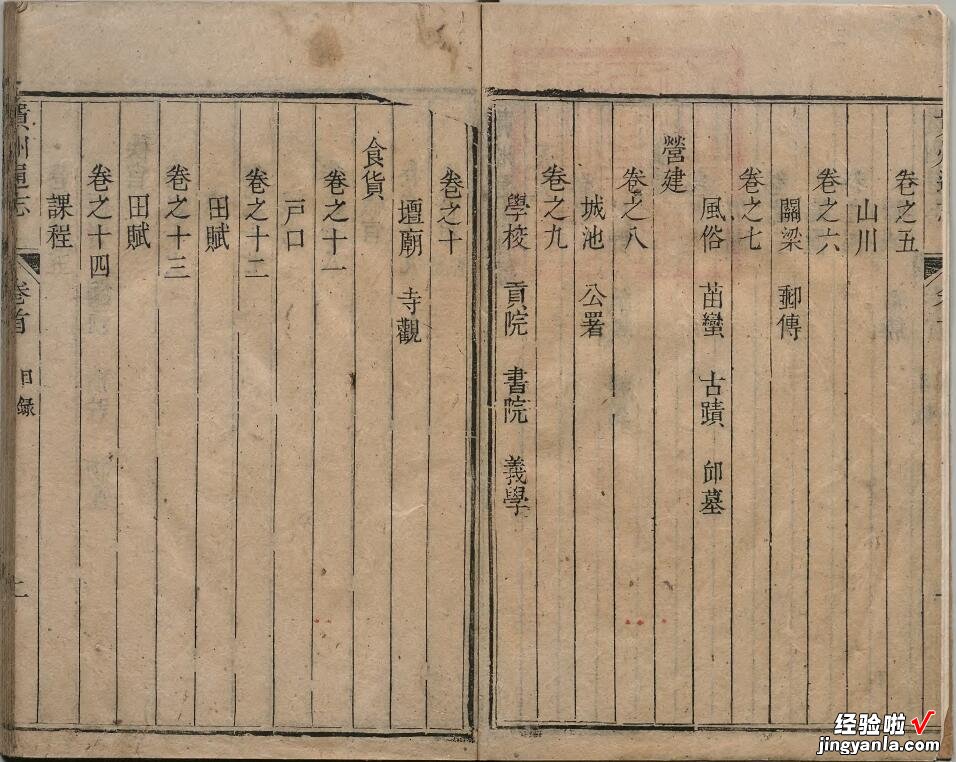 卷之五
山川
卷之六
關梁 郵傳
卷之七
風俗 苗蠻 古蹟 邱墓
營建
卷之八
城池 公署
卷之九
學校 貢院 書院 義學
卷之十
壇廟 寺觀
食貨
卷之十一
戸口
卷之十二
田賦
卷之十三
田賦
卷之十四
課程
貴州通志 卷首 目錄
经验啦√
jingyanla.com